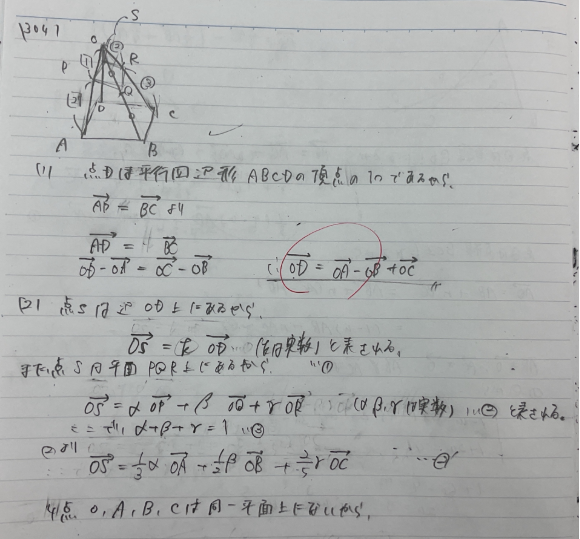 [304]
S
O
②
R
P
①
③
②
Q
D
C
A
B
(1) 点Dは平行四辺形ABCDの頂点の1つであるから、
AD = BC より
AD = BC
OD - OA = OC - OB ∴ OD = OA - OB + OC
(2) 点Sは辺OD上にあるから、
OS = k OD … (kは実数) と表される。
また点Sは平面PQR上にあるから …①
OS = α OP + β OQ + γ OR … (α, β, γは実数) …② と表される。
ここで、α + β + γ = 1 …③
②より
OS = 1/3 α OA + 1/2 β OB + 2/5 γ OC …②'
4点 O, A, B, Cは同一平面上にないから、